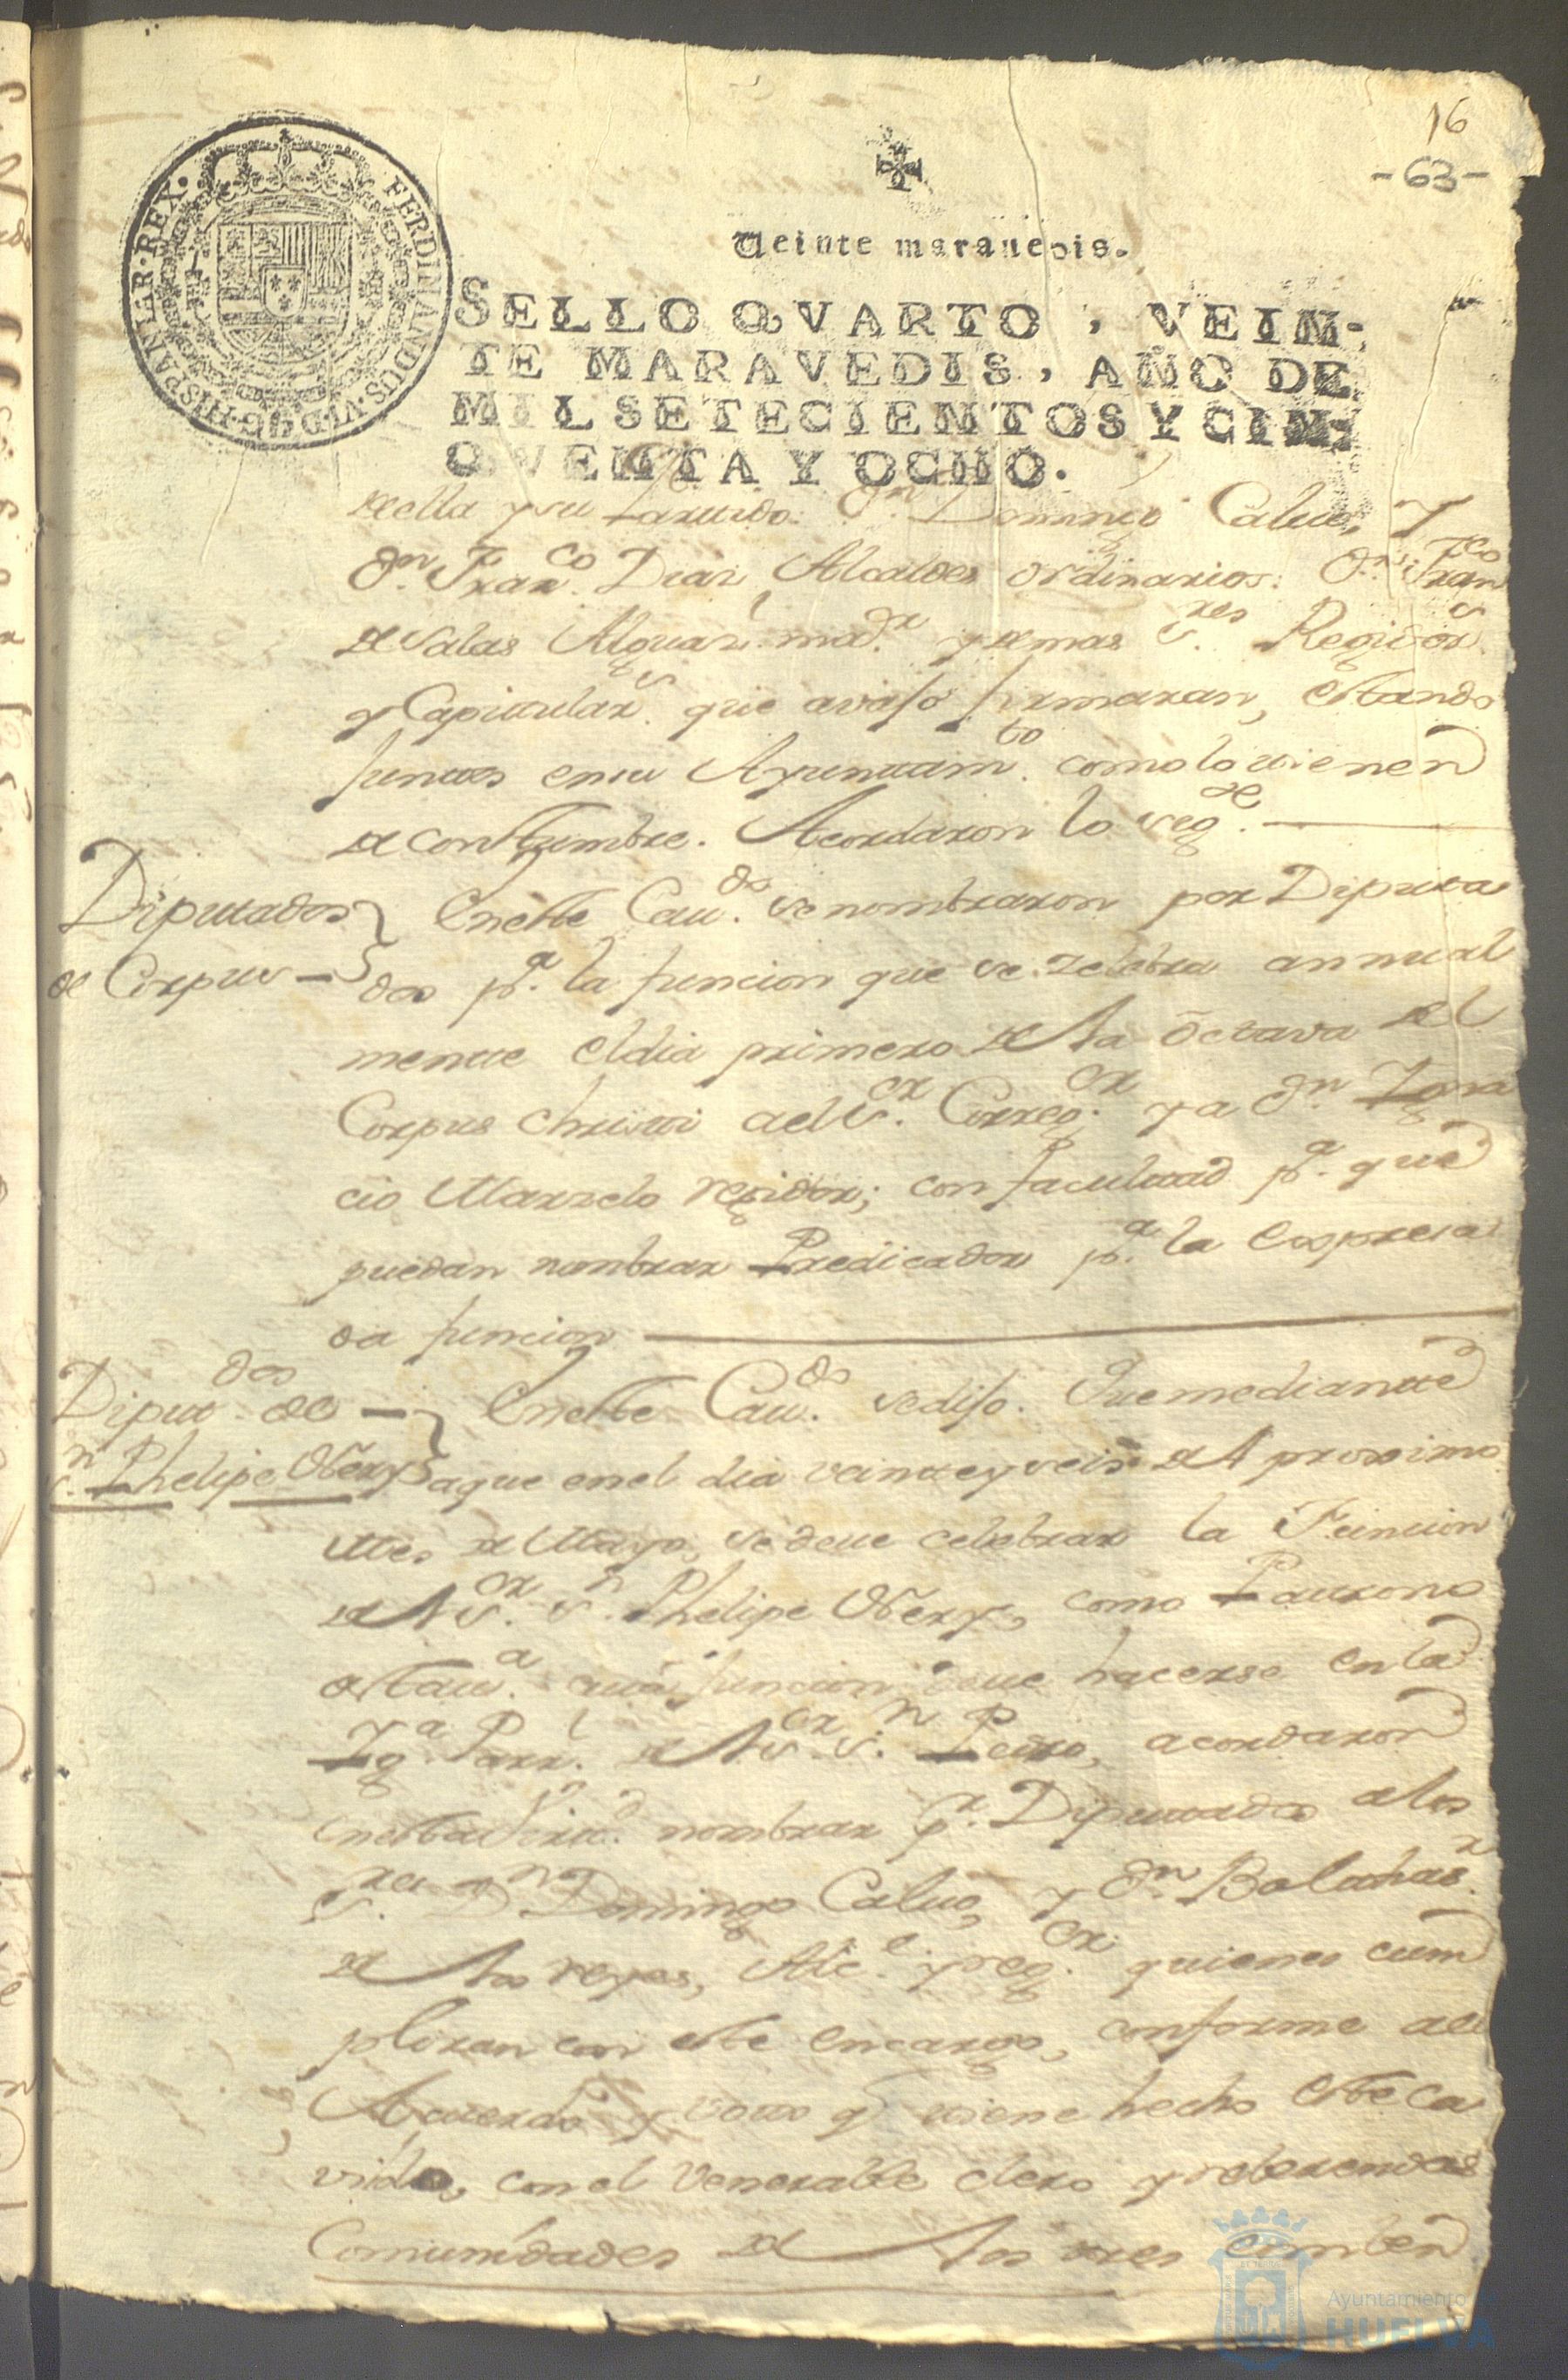 16
-63-
FERDINANDUS·VI·D·G·HISPANIAR·REX·
Veinte marauedis.
SELLO QVARTO, VEIN-
TE MARAVEDIS, AÑO DE
MIL SETECIENTOS Y CIN-
QVENTA Y OCHO.
de ella y su Partido: Dn. Domingo Calvo, Y
Dn. Franco. Diaz, Alcaldes ordinarios: Dn. Franco
de Salas Alguazl. maor. y demas Sres. Regidors.
y Capitulars. que avajo firmaran, estando
juntos en su Ayuntamto. como lo tienen
de constumbre. Acordaron lo sigte.
Diputados
de Corpus
En este Cavdo. se nombraron por Diputa
dos pa. la funcion que se zelebra annual
mente el dia primero de la octava del
Corpus christi al Sor. Correxor. y a Dn. Ygna
cio Marzelo rexidor; con facultad pa. que
puedan nombrar Predicador pa. la expresa
da funcion
Diputdos. de
Sn. Phelipe Nery
En este Cavdo. se dijo. Que mediante
a que en el dia veinte y seis del proximo
Mes de Mayo, se deve celebrar la Funcion
del Sor. Sn. Phelipe Nery, como Patrono
desta va. cuia funcion deve hacerse en la
Yga. Parrl. del Sor. Sn. Pedro, acordaron
en esta virtd. nombrar pr. Diputados a los
Sres. Dn. Domingo Calvo, y Dn. Balthasr.
de los reyes, Alce. y regor. quienes cum
pliran con este encargo, conforme al
Acuerdo y voto q tiene hecho este ca
vildo, con el Venerable clero y reberendas
Comunidades de los tres comben
Ayuntamiento de
HUELVA